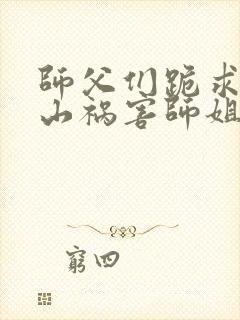 師父们跪求
山祸害師姐
窮四